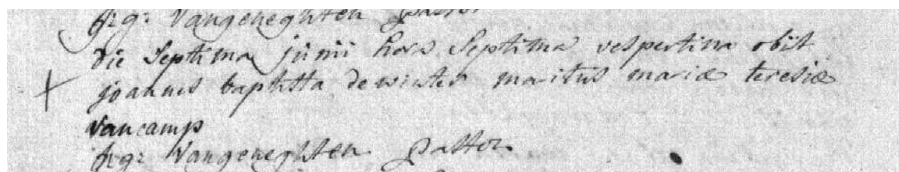 Vangeneghten pastor
die Septima junii hora Septima vespertina obiit
joannes baptista dewinter maritus mariæ teresiæ
Vancamp
Vangeneghten pastor